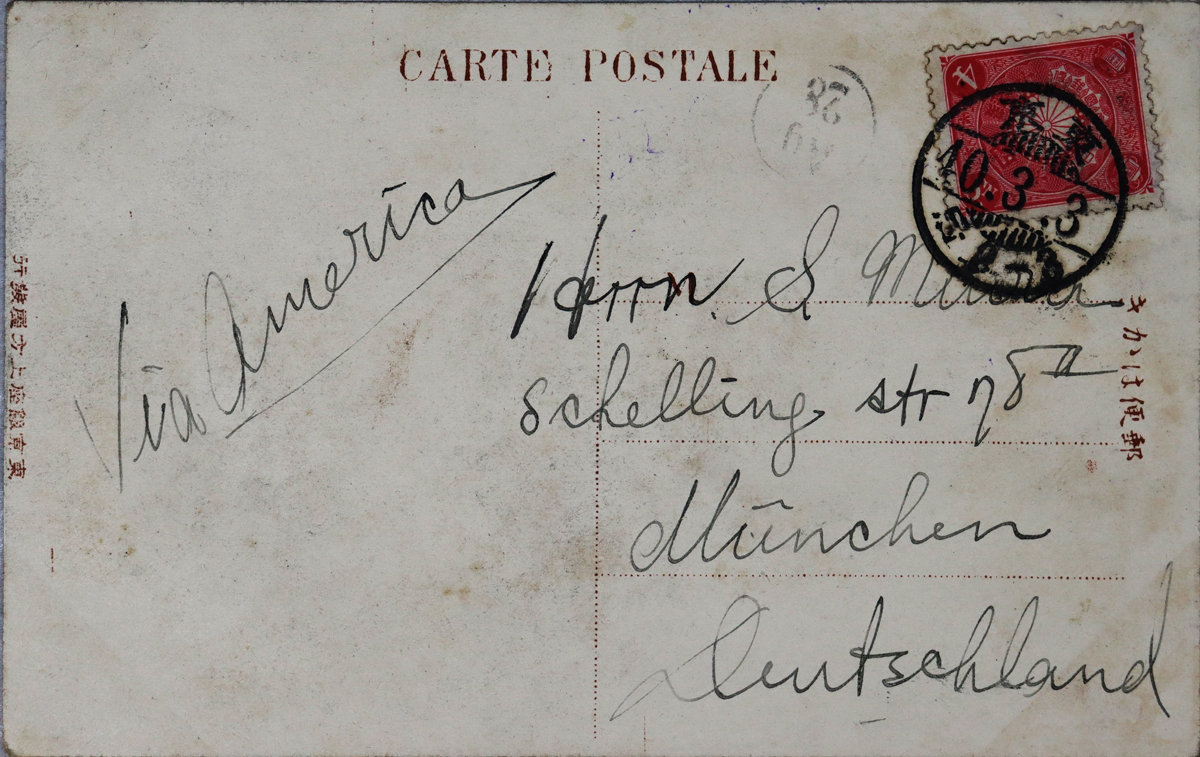 CARTE POSTALE
28
東京
40.3.3
Via America
Herrn S
Schelling str 78 a
München
Deutschland
郵便はかき
東京銀座上方屋發行